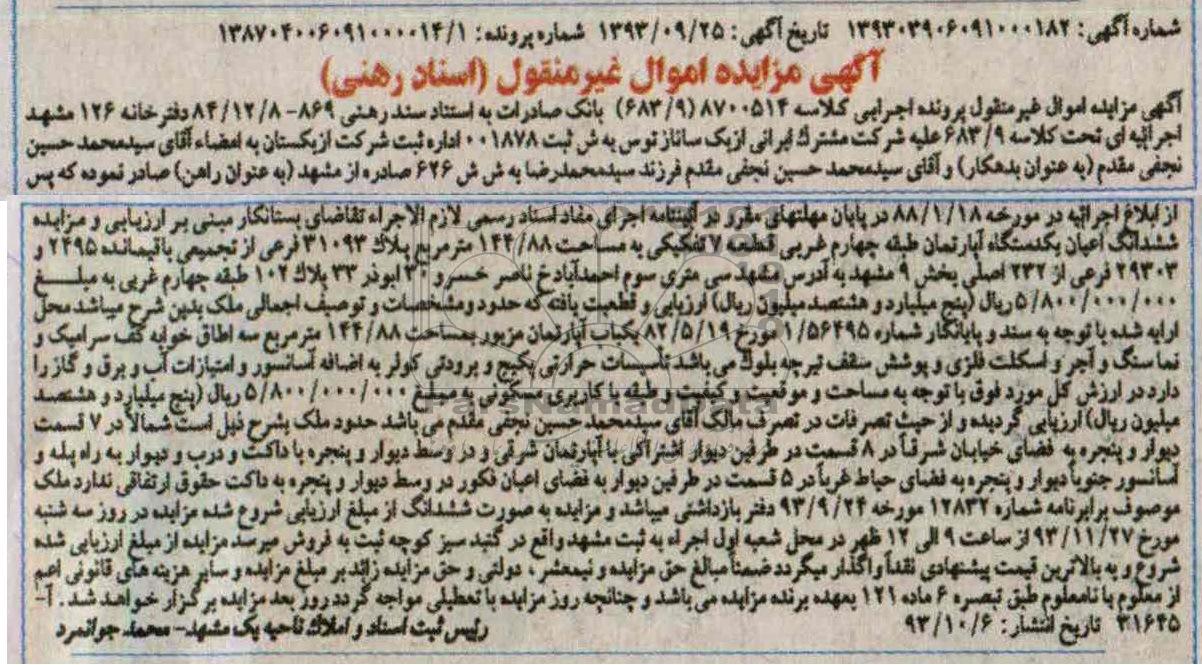 شماره آگهی: ۱۳۹۳۰۳۹۰۶۰۹۱۰۰۰۱۸۲ تاریخ آگهی: ۱۳۹۳/۰۹/۲۵ شماره پرونده: ۱۳۸۷۰۴۰۰۶۰۹۱۰۰۰۰۱۴/۱
آگهی مزایده اموال غیرمنقول (اسناد رهنی)
آگهی مزایده اموال غیرمنقول پرونده اجرایی کلاسه ۸۷۰۰۵۱۴ (۶۸۳/۹) بانک صادرات به استناد سند رهنی ۸۶۹-۸۴/۱۲/۸ دفترخانه ۱۲۶ مشهد
اجرائیه ای تحت کلاسه ۶۸۳/۹ علیه شرکت مشترک ایرانی ازبک ساناز توس به ش ثبت ۰۰۱۸۷۸ اداره ثبت شرکت ازبکستان به امضاء آقای سیدمحمد حسین
نجفی مقدم (به عنوان بدهکار) و آقای سیدمحمد حسین نجفی مقدم فرزند سیدمحمدرضا به ش ش ۶۲۶ صادره از مشهد (به عنوان راهن) صادر نموده که پس
از ابلاغ اجرائیه در مورخه ۸۸/۱/۱۸ در پایان مهلتهای مقرر در آئیننامه اجرای مفاد اسناد رسمی لازم الاجراء تقاضای بستانکار مبنی بر ارزیابی و مزایده
ششدانگ اعیان یکدستگاه آپارتمان طبقه چهارم غربی قطعه ۷ تفکیکی به مساحت ۱۴۴/۸۸ مترمربع پلاک ۳۱۰۹۳ فرعی از تجمیعی باقیمانده ۲۴۹۵ و
۲۹۳۰۳ فرعی از ۲۳۲ اصلی بخش ۹ مشهد به آدرس مشهد سی متری سوم احمدآباد خ ناصر خسرو ۳۰ ابوذر ۳۳ پلاک ۱۰۲ طبقه چهارم غربی به مبلغ
۵/۸۰۰/۰۰۰/۰۰۰ ریال (پنج میلیارد و هشتصد میلیون ریال) ارزیابی و قطعیت یافته که حدود و مشخصات و توصیف اجمالی ملک بدین شرح میباشد محل
ارایه شده با توجه به سند و پایانکار شماره ۱/۵۶۴۹۵ مورخ ۸۲/۵/۱۹ یکباب آپارتمان مزبور بمساحت ۱۴۴/۸۸ مترمربع سه اطاق خوابه کف سرامیک و
نما سنگ و آجر و اسکلت فلزی و پوشش سقف تیرچه بلوک می باشد تأسیسات حرارتی پکیج و برودتی کولر به اضافه آسانسور و امتیازات آب و برق و گاز را
دارد در ارزش کل مورد فوق با توجه به مساحت و موقعیت و کیفیت و طبقه با کاربری مسکونی به مبلغ ۵/۸۰۰/۰۰۰/۰۰۰ ریال (پنج میلیارد و هشتصد
میلیون ریال) ارزیابی گردیده و از حیث تصرفات در تصرف مالک آقای سیدمحمد حسین نجفی مقدم می باشد حدود ملک بشرح ذیل است شمالاً در ۷ قسمت
دیوار و پنجره به فضای خیابان شرقاً در ۸ قسمت در طرفین دیوار اشتراکی با آپارتمان شرقی و در وسط دیوار و پنجره با داکت و درب و دیوار به راه پله و
آسانسور جنوباً دیوار و پنجره به فضای حیاط غرباً در ۵ قسمت در طرفین دیوار به فضای اعیان فکور در وسط دیوار و پنجره به داکت حقوق ارتفاقی ندارد ملک
موصوف برابر نامه شماره ۱۲۸۳۲ مورخه ۹۳/۹/۲۴ دفتر بازداشتی میباشد و مزایده به صورت ششدانگ از مبلغ ارزیابی شروع شده مزایده در روز سه شنبه
مورخ ۹۳/۱۱/۲۷ از ساعت ۹ الی ۱۲ ظهر در محل شعبه اول اجراء به ثبت مشهد واقع در گنبد سبز کوچه ثبت به فروش میرسد مزایده از مبلغ ارزیابی شده
شروع و به بالاترین قیمت پیشنهادی نقداً واگذار میگردد ضمناً مبالغ حق مزایده و نیمعشر، دولتی و حق مزایده زائد بر مبلغ مزایده و سایر هزینه های قانونی اعم
از معلوم یا نامعلوم طبق تبصره ۶ ماده ۱۲۱ بعهده برنده مزایده می باشد و چنانچه روز مزایده با تعطیلی مواجه گردد روز بعد مزایده برگزار خواهد شد. آ-
۳۱۶۴۵ تاریخ انتشار: ۹۳/۱۰/۶ رئیس ثبت اسناد و املاک ناحیه یک مشهد- محمد جوانمرد
ParsNamadData